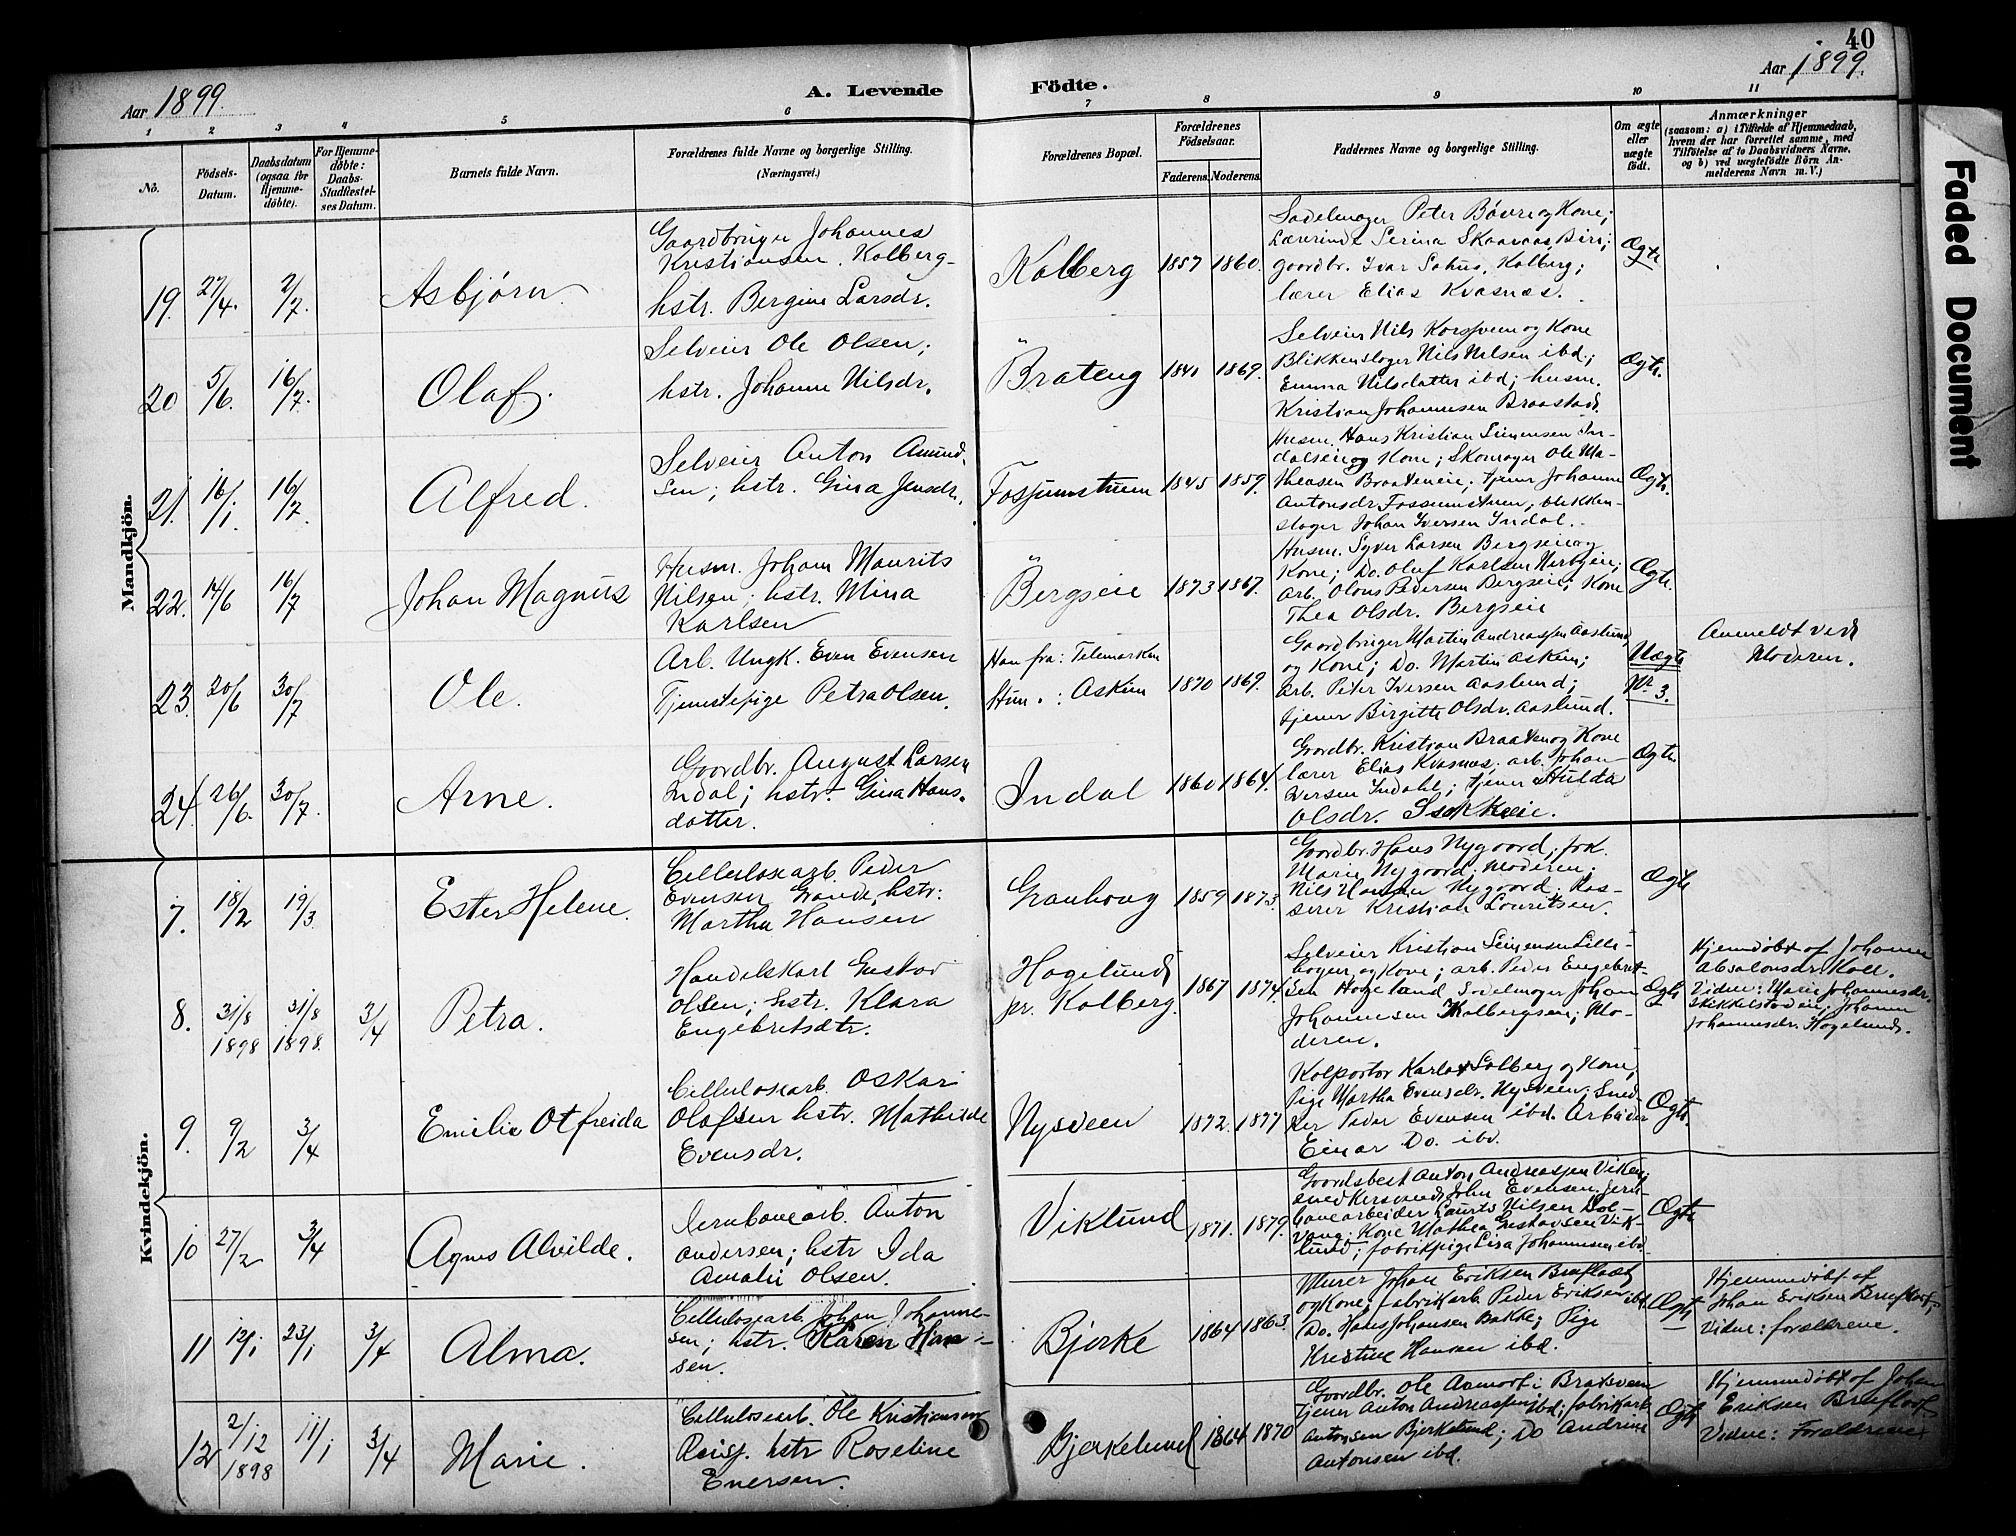 40
Aar 1899.
A. Levende Födte.
Aar 1899.
1 2 3 4 5 6 7 8 9 10 11
No.
Födsels-Datum.
Daabsdatum (ogsaa for Hjemmedöbte).
For Hjemmedöbte: Daabs-Stadfæstelses Datum.
Barnets fulde Navn.
Forældrenes fulde Navne og borgerlige Stilling.
(Næringsvei.)
Forældrenes Bopæl.
Forældrenes Födselsaar.
Faderens. Moderens.
Faddernes Navne og borgerlige Stilling.
Om ægte eller uægte födt.
Anmærkninger
(saasom: a) i Tilfælde af Hjemmedaab, hvem der har forrettet samme, med Tilföielse af to Daabsvidners Navne, og b) ved uægtefödte Börn Anmelderens Navn m. V.)
Faded Document
Mandkjön.
19. 27/4. 2/7. Asbjørn.
Gaardbruger Johannes
Kristiansen Kolberg
hstr. Bergine Larsdr.
Kolberg 1857 1860.
Sadelmager Peter Bøvre og Kone;
Lærerinde Serina Skaanaas, Biri;
gaardbr. Ivar Sahus, Kolberg;
lærer Elias Kvasnæs.
Ægte
20 5/6. 16/7. Olaf.
Selveier Ole Olsen;
hstr. Johanne Nilsdr.
Brateng 1841 1869.
Selveier Nils Korssveen og Kone
Blikkenslager Nils Nilsen ibd.;
Emma Nilsdatter ibd; husm.
Kristian Johannesen Braastad.
Ægte.
21. 16/1. 16/7. Alfred.
Selveier Anton Amundsen; hstr. Gina Jensdr.
Fossumstuen 1845 1859.
Husm. Hans Kristian Simensen Indalseie og Kone; Skomager Ole Mathesen Braateneie; tjener Johanne
Antonsdr Fossumstuen, blikkenslager Johan Iversen Indal.
Ægte.
22. 14/6 16/7 Johan Magnus
Husm. Johan Maurits
Nilsen hstr. Mina
Karlsen
Bergseie 1873 1867.
Husm. Syver Larsen Bergseie og
Kone; Do. Oluf Karlsen
Arb. Olaus Pedersen Bergseie; Kone
Thea Olsdr. Bergseie
Ægte
23. 20/6 30/7 Ole.
Arb. Ungk. Even Evensen
Tjenestepige Petra Olsen.
Han fra: Telemarken
Hun " : Askim 1870 1869.
Gaardbruger Martin Andreassen Aaslund
og Kone; Do. Martin Askim;
arb. Peter Iversen Aaslund;
tjener Birgitte Olsdr. Aaslund.
Uægte
Nr. 3.
Anmeldt ved
Moderen.
24. 26/6. 30/7. Arne.
Gaardbr. August Larsen
Indal; hstr. Gina Hansdatter.
Indal 1860 1864.
Gaardbr. Kristian Braaten og Kone
lærer Elias Kvasnæs; arb. Johan
Iversen Indahl; tjener Hulda
Olsdr.
Ægte
Kvindekjön.
7. 18/2 19/3 Ester Helene.
Cellulosearb. Peder
Evensen Grande, hstr.
Martha Hansen
Granhoug 1859 1873.
Gaardbr. Hans Nygaard; frk.
Marie Nygaard; Moderen;
Nils Hansen Nygaard; Kasserer Kristian Lauritsen.
Ægte
8. 31/8 1898 31/8 1898. 3/4 Petra.
Handelskarl Gustav
Olsen; hstr. Klara
Engebretsdtr.
Hagelund
pr. Kolberg. 1867 1874.
Selveier Kristian Simensen Lillehagen og Kone; arb. Peder Engebretsen Hageland Sadelmager Johan
Johannesen Kolbergseie; Moderen.
Ægte
Hjemdøbt af Johanne
Absalonsdr. Koll.
Vidne: Marie Johannesdr.
Skikkelstadeie; Johanne
Johannesdr. Hagelund.
9. 9/2 3/4 Emilie Otfreida
Cellulosearb. Oskar
Olafsen hstr. Mathilde
Evensdr.
Nysveen 1872. 1877
Kolportør Karl Solberg og Kone,
Pige Martha Evensdr. Nysveen; Snedker Peder Evensen ibd. Arbeider
Einar Do. ibd.
Ægte.
10 27/2 3/4 Agnes Alvilde.
Jernbanearb. Anton
Andersen; hstr Ida
Amalie Olsen.
Viklund 1871. 1879.
Gaardsbest Anton Andreassen Viken;
snedkersvend John Evensen; Jernbanearbeider Laurits Nilsen
Kone Mathea Gustavsen Viklund; fabrikpige Lisa Johannesen ibd.
Ægte
11 12/1 23/1 3/4 Alma.
Cellulosearb. Johan Johannesen; hstr. Karen Hansen.
Bjerke 1864 1863.
Murer Johan Eriksen Bræflaat
og Kone; fabrikarb. Peder Eriksen ibd.
Do. Hans Johansen Bakke; Pige
Kristine Hansen ibd.
Ægte
Hjemmedøbt af
Johan Eriksen
Vidne: forældrene.
12 2/12 1898 11/1 3/4 Marie.
Cellulosearb. Ole Kristiansen
hstr Roseline
Enersen.
Bjerkelund 1864 1870
Gaardbr. Ole Aamodt i Braksveen
Tjener Anton Andreassen ibd; fabrikarb
Antonsen Bjerkelund; Do Andrine
Antonsen ibd.
Ægte
Hjemmedøbt af Johan
Eriksen
Vidne: Forældrene